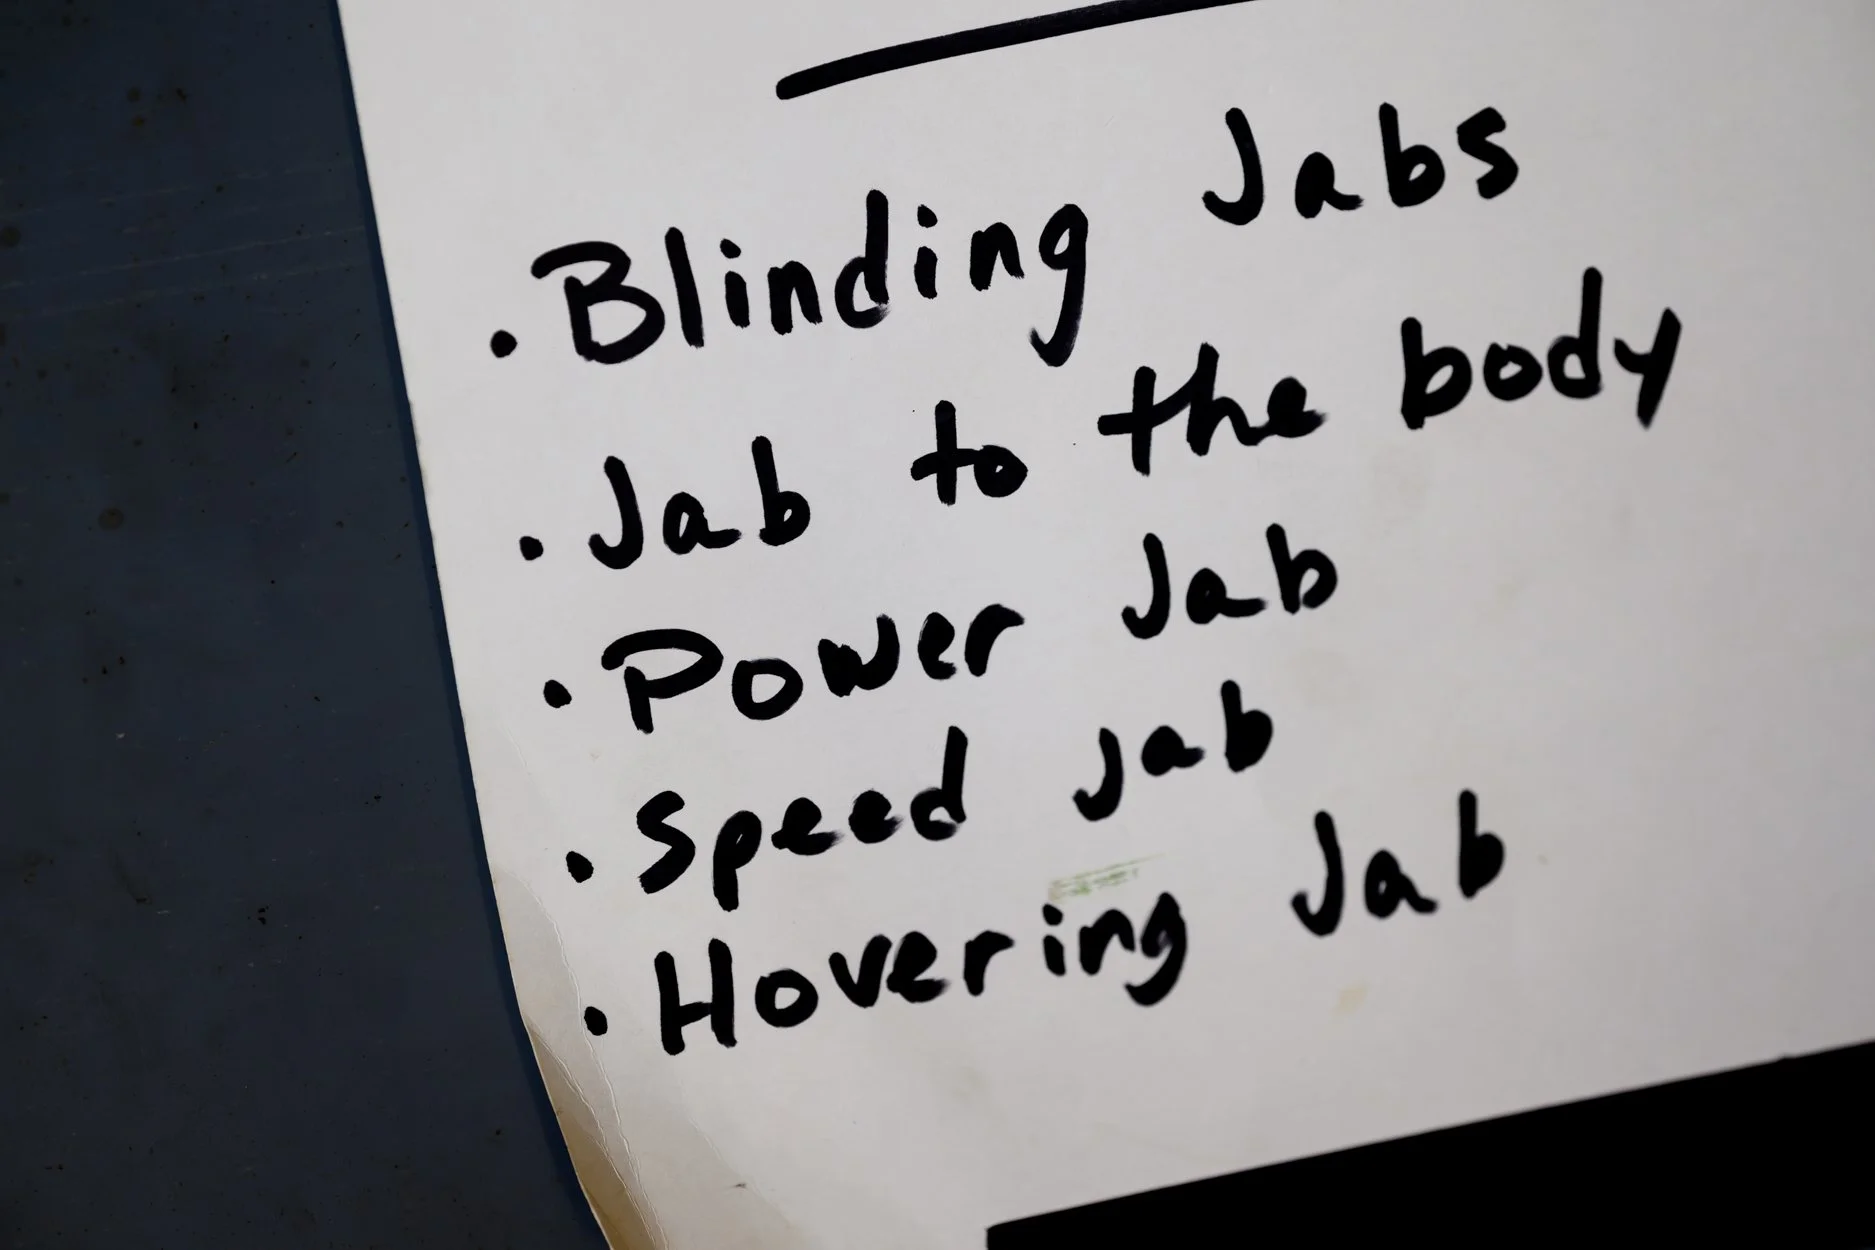 • Blinding Jabs
• Jab to the body
• Power Jab
• Speed jab
• Hovering Jab